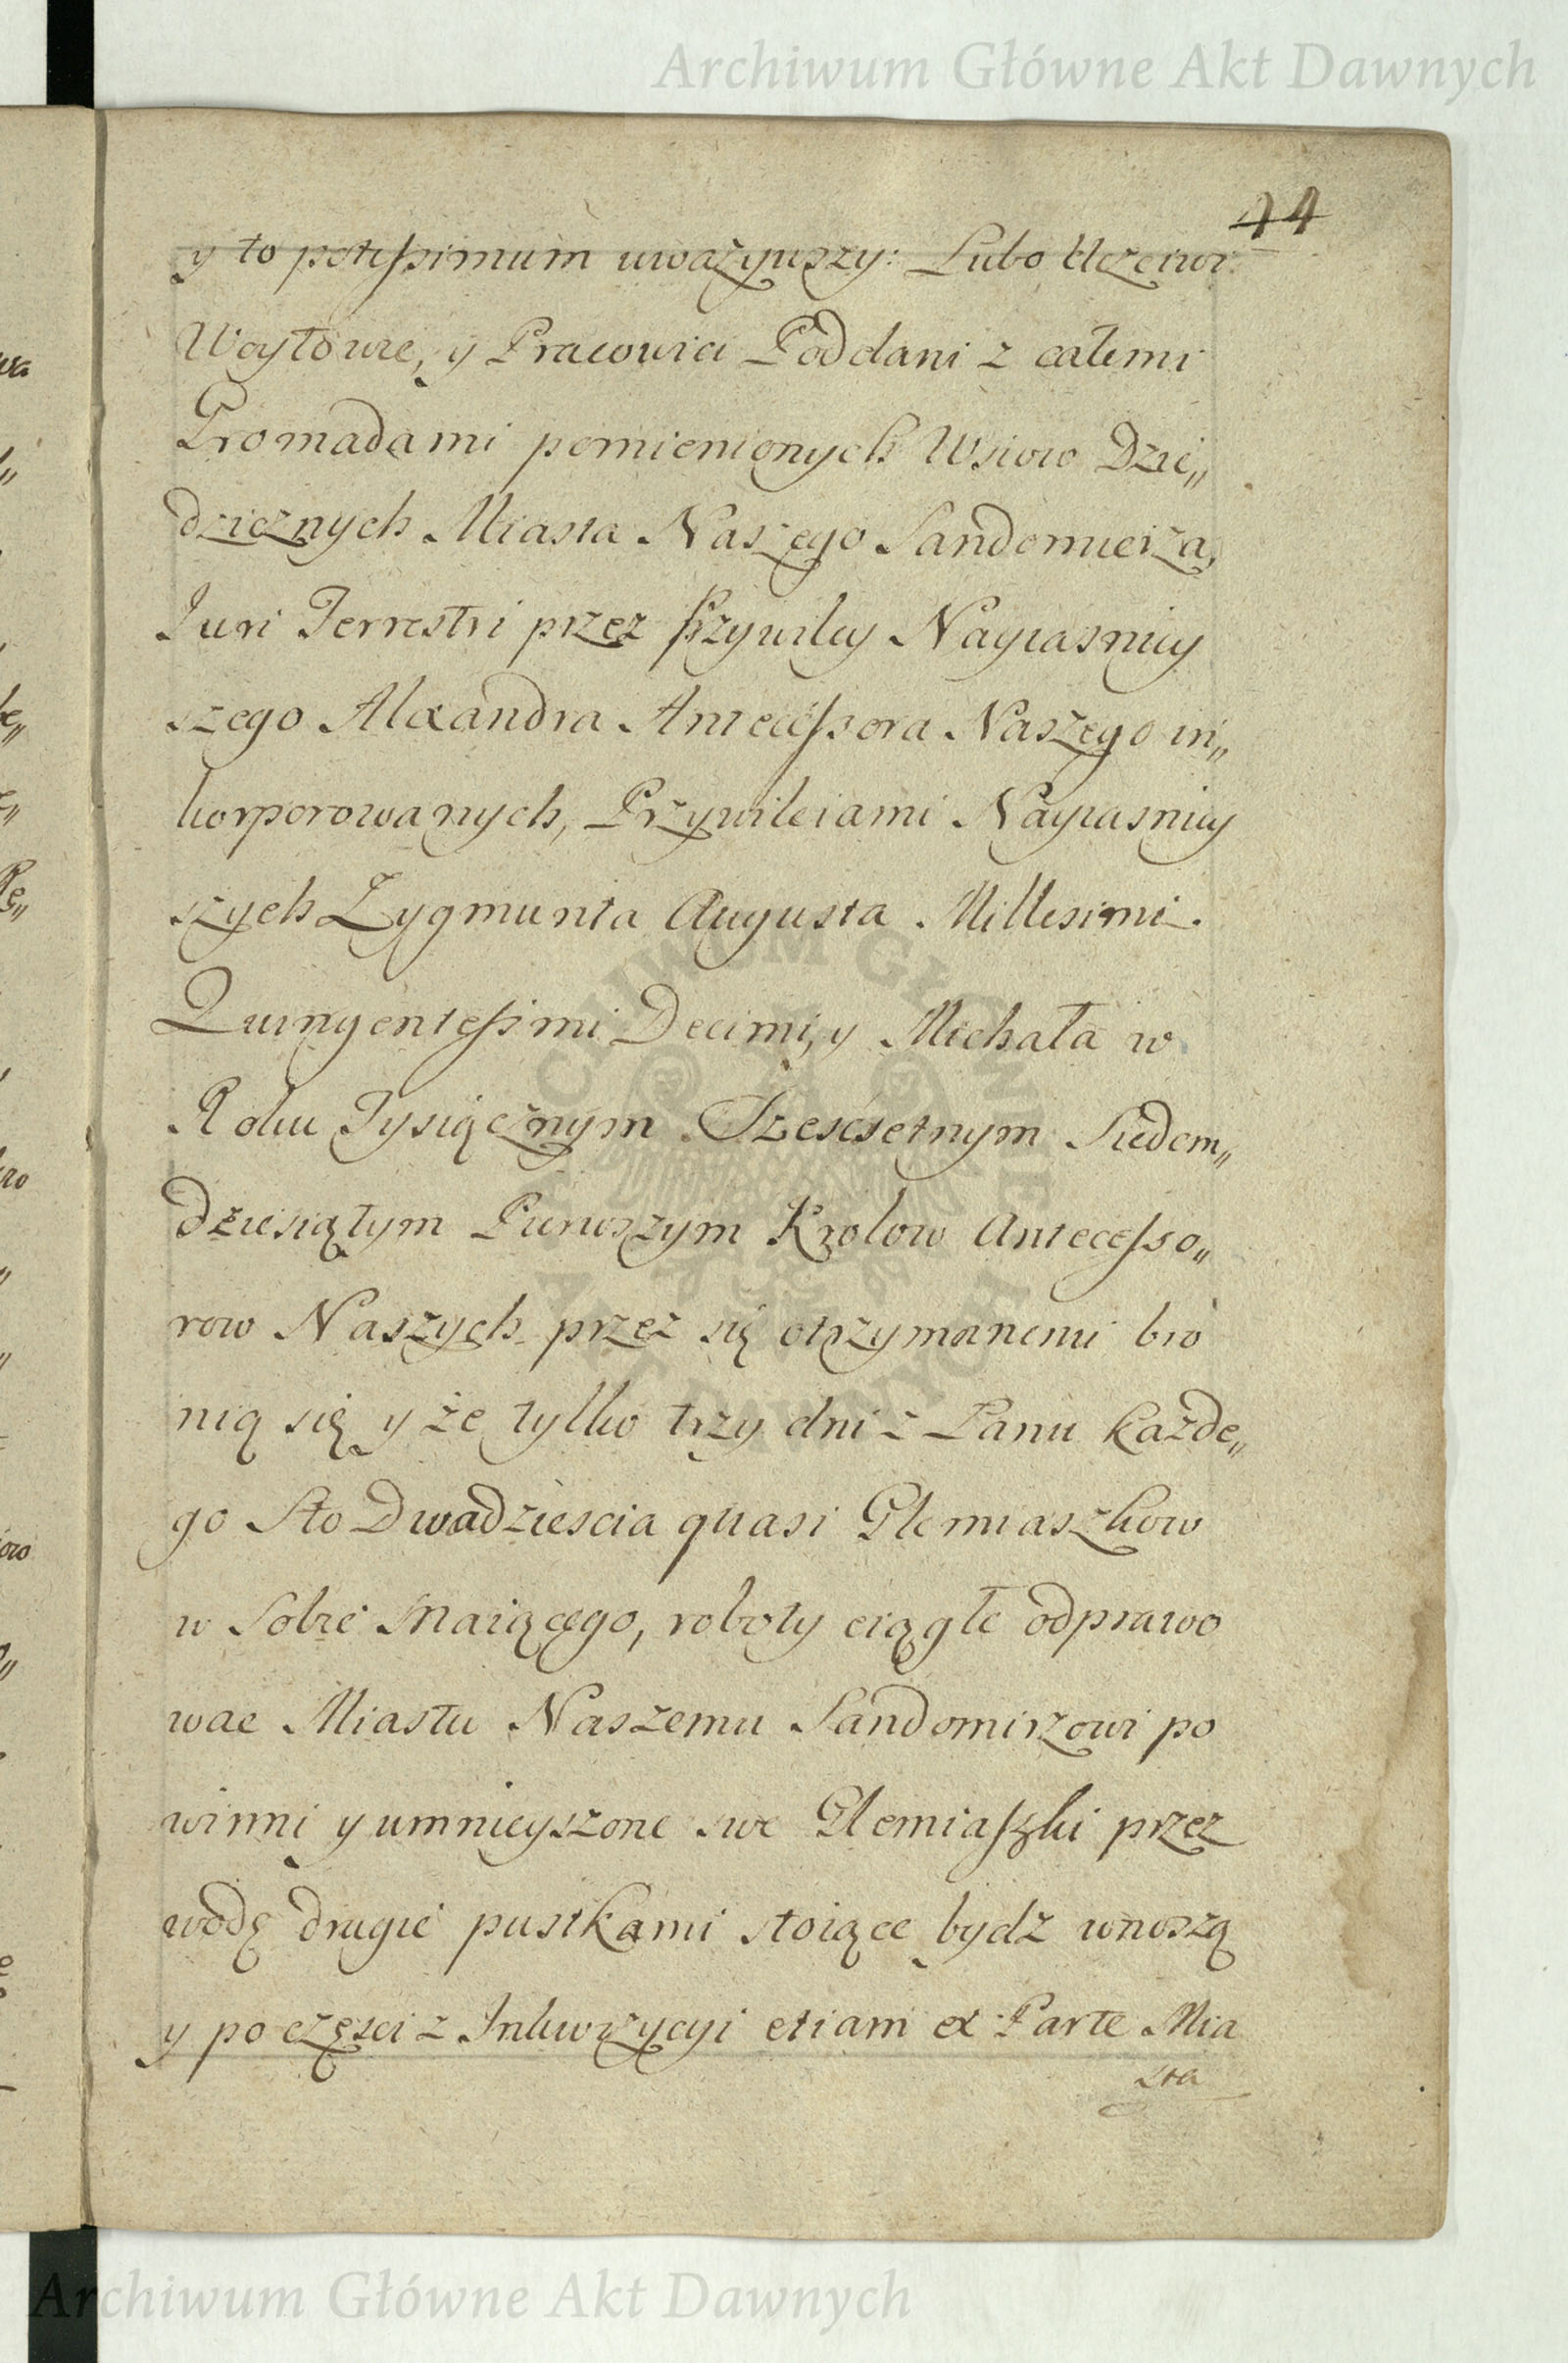 Archiwum Główne Akt Dawnych
44
y to potissimum uważywszy: Lubo Uczciwi
Woytowie, y Pracowici Poddani z całemi
Gromadami pomienionych Wsiow Dzie„
dzicznych Miasta Naszego Sandomierza,
Juri Terrestri przez Przywiley Nayiasniey
szego Alexandra Antecessora Naszego in„
korporowanych, Przywileiami Nayiasniey
szych Zygmunta Augusta Millesimi
Quingentesimi Decimi, y Michała w
Roku Tysiącznym Sześćsetnym Siedem„
dziesiątym Pierwszym Krolow Antecesso„
row Naszych przez się otrzymanemi bro
nią się y że tylko trzy dni z Łanu każde„
go Sto Dwadziescia quasi Płemiaszkow
w Sobie Maiącego, roboty ciągłe odprawo
wac Miastu Naszemu Sandomirzowi po
winni y umnieyszone swe Płemiaszki przez
wodę drugie pustkami stoiące bydz wnoszą
y po częsci z Inkwizycyi etiam ex Parte Mia
sta
Archiwum Główne Akt Dawnych